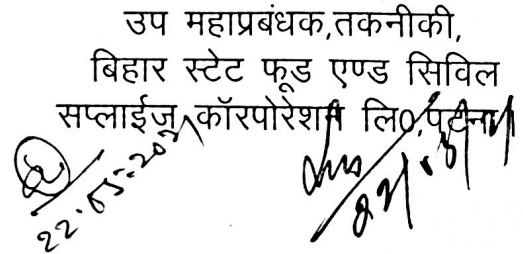 उप महाप्रबंधक,तकनीकी,
बिहार स्टेट फूड एण्ड सिविल
सप्लाईज कॉरपोरेशन लि०,पटना
22.05.2021